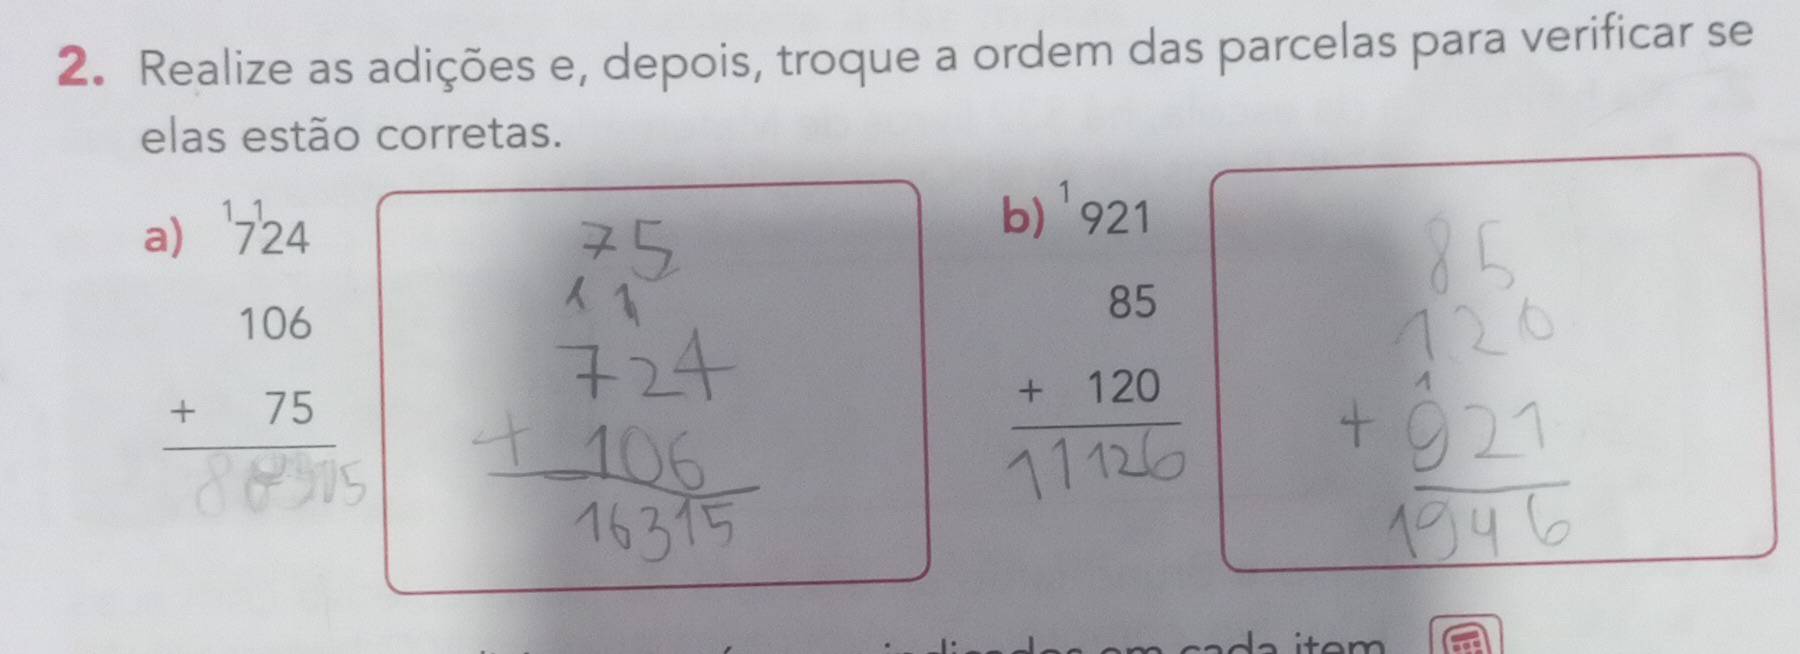 2. Realize as adições e, depois, troque a ordem das parcelas para verificar se
elas estão corretas.
a) 1 1
724
106
+ 75
75
1 1
724
+ 106
16315
b) 1
921
85
+ 120
11126
85
120
1
+ 921
1946
em cada item